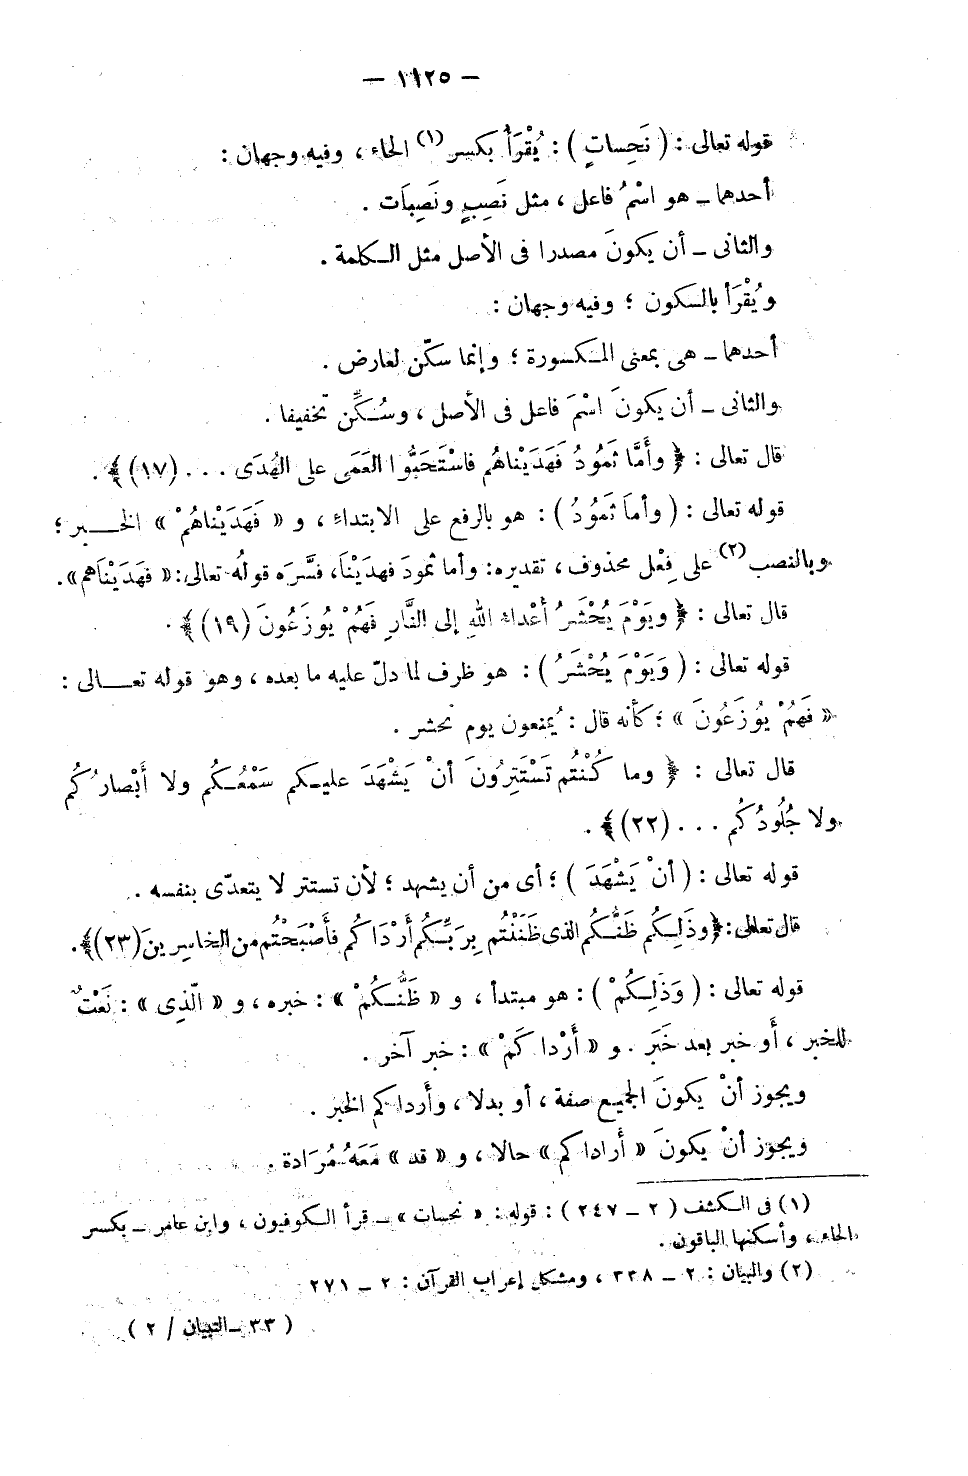 — ١١٢٥ —
قوله تعالى : ( نَحِساتٍ ) : يُقْرَأُ بكسر (١) الحاء ، وفيه وجهان :
أحدهما ــ هو اسْمُ فاعل ، مثل نَصِبٍ ونَصِبَات .
والثانى ــ أن يكونَ مصدرا فى الأصل مثل الـكلمة .
ويُقْرَأ بالسكون ؛ وفيه وجهان :
أحدهما ــ هى بمعنى المـكسورة ؛ وإنما سكّن لعارض .
والثانى ــ أن يكونَ اسْمَ فاعل فى الأصل ، وسُـكِّن تخفيفا .
قال تعالى : ﴿ وأَمَّا ثَمُودُ فَهَدَيْناهُم فاسْتَحَبُّوا العَمَى على الهُدَى . . . (١٧) ﴾ .
قوله تعالى : ( وأماَ ثَمُودُ ) : هو بالرفع على الابتداء ، و « فَهَدَيْناهُمْ » الخـــبر ؛
وبالنصب (٢) على فِعْل محذوف ، تقديره : وأما ثمودَ فهديْنَا، فسَّرَه قولُه تعالى : « فهَدَيْنَاهم » .
قال تعالى : ﴿ ويَوْمَ يُحْشَرُ أَعْداءُ اللهِ إلى النَّارِ فَهُمْ يُوزَعُونَ (١٩) ﴾ .
قوله تعالى : ( وَيَوْمَ يُحْشَرُ ) : هو ظرف لما دلّ عليه ما بعده ، وهو قوله تعـــالى :
« فَهُمْ يُوزَعُونَ » ؛ كأنه قال : يُمنعون يوم نحشر .
قال تعالى : ﴿ وما كُنْتُم تَسْتَتِرُونَ أنْ يَشْهَدَ عليـكم سَمْعُـكُم ولا أَبْصارُكُم
ولا جُلُودُكُم . . . (٢٢) ﴾ .
قوله تعالى : ( أنْ يَشْهَدَ ) ؛ أى من أن يشهد ؛ لأن تستتر لا يتعدّى بنفسه .
قال تعالى : ﴿ وذَلِـكُم ظَنُّـكُم الذى ظَنَنْتُم بِرَبِّـكُم أَرْدَاكُم فأَصْبَحْتُم من الخاسِرينَ (٢٣) ﴾ .
قوله تعالى : ( وَذَلِـكُمْ ) : هو مبتدأ ، و « ظَنُّـكُمْ » : خبره ، و « الّذِى » : نَعْتٌ
للخبر ، أو خبر بعد خَبَر . و « أَرْداكَمْ » : خبر آخر .
ويجوز أنْ يكونَ الجميـع صفة ، أو بدلا ، وأَرداكم الخبر .
ويجوز أنْ يكونَ « أَراداكم » حالا ، و « قد » مَعَهُ مُرَادة .
(١) فى الـكشف ( ٢ ــ ٢٤٧ ) : قوله : « نحسات » ــ قرأ الـكوفيون ، وابن عامر ــ بكسر
الحاء ، وأسكنها الباقون .
(٢) والبيان : ٢ ــ ٣٣٨ ، ومشكل إعراب القرآن : ٢ ــ ٢٧١
( ٣٣ ــ التبيان / ٢ )